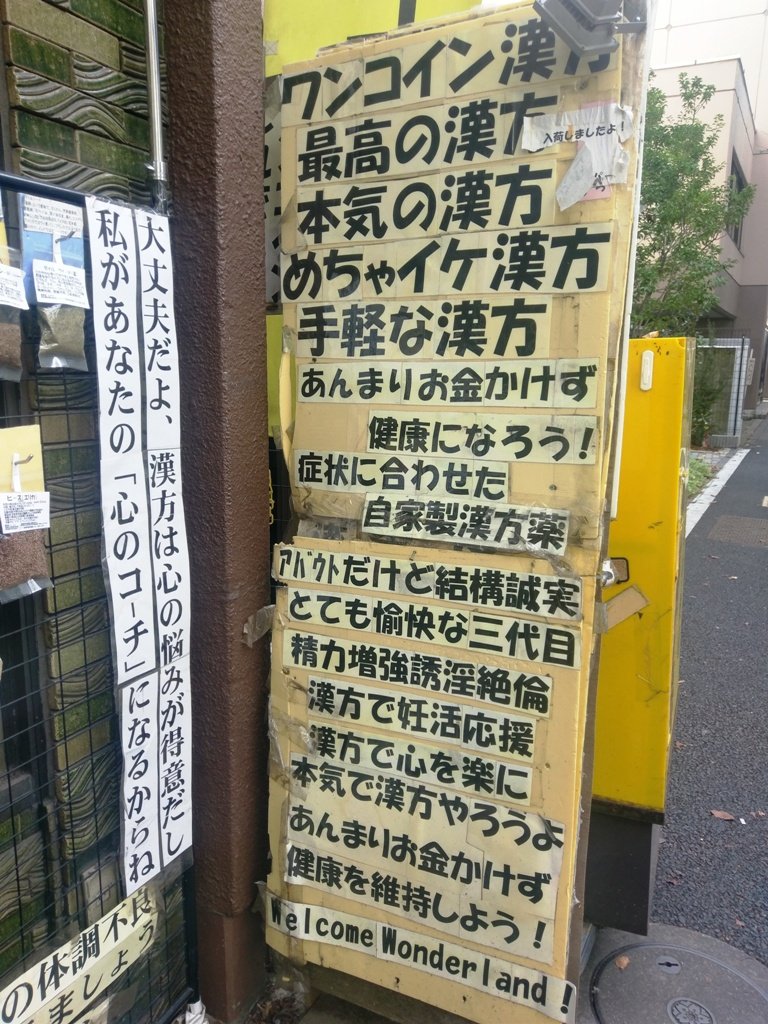 ワンコイン漢方
最高の漢方
入荷しましたよ!
本気の漢方
めちゃイケ漢方
手軽な漢方
あんまりお金かけず
健康になろう!
症状に合わせた
自家製漢方薬
アバウトだけど結構誠実
とても愉快な三代目
精力増強誘淫絶倫
漢方で妊活応援
漢方で心を楽に
本気で漢方やろうよ
あんまりお金かけず
健康を維持しよう!
Welcome Wonderland!
大丈夫だよ、漢方は心の悩みが得意だし
私があなたの「心のコーチ」になるからね
の体調不良
ましょう